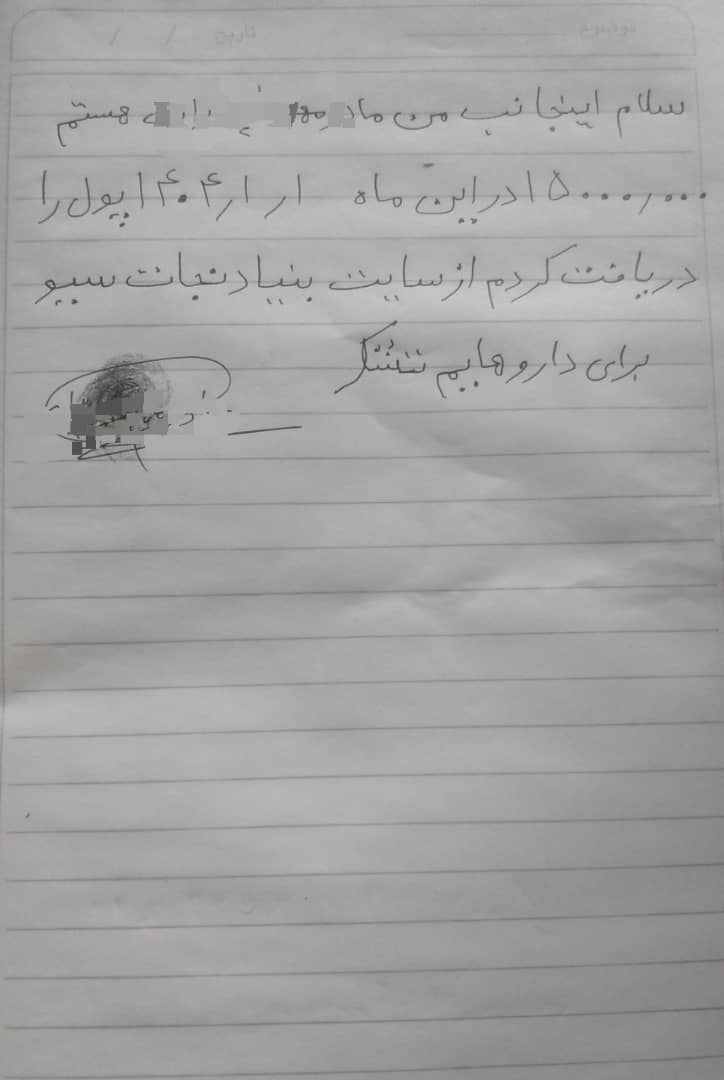 موضوع تاریخ / /
سلام اینجانب من مادر هستم
۱۵۰۰۰,۰۰۰ در این ماه ۱ر۱ر۱۴۰۴ پول را
دریافت کردم از سایت بنیاد نجات سیو
برای داروهایم تشکر